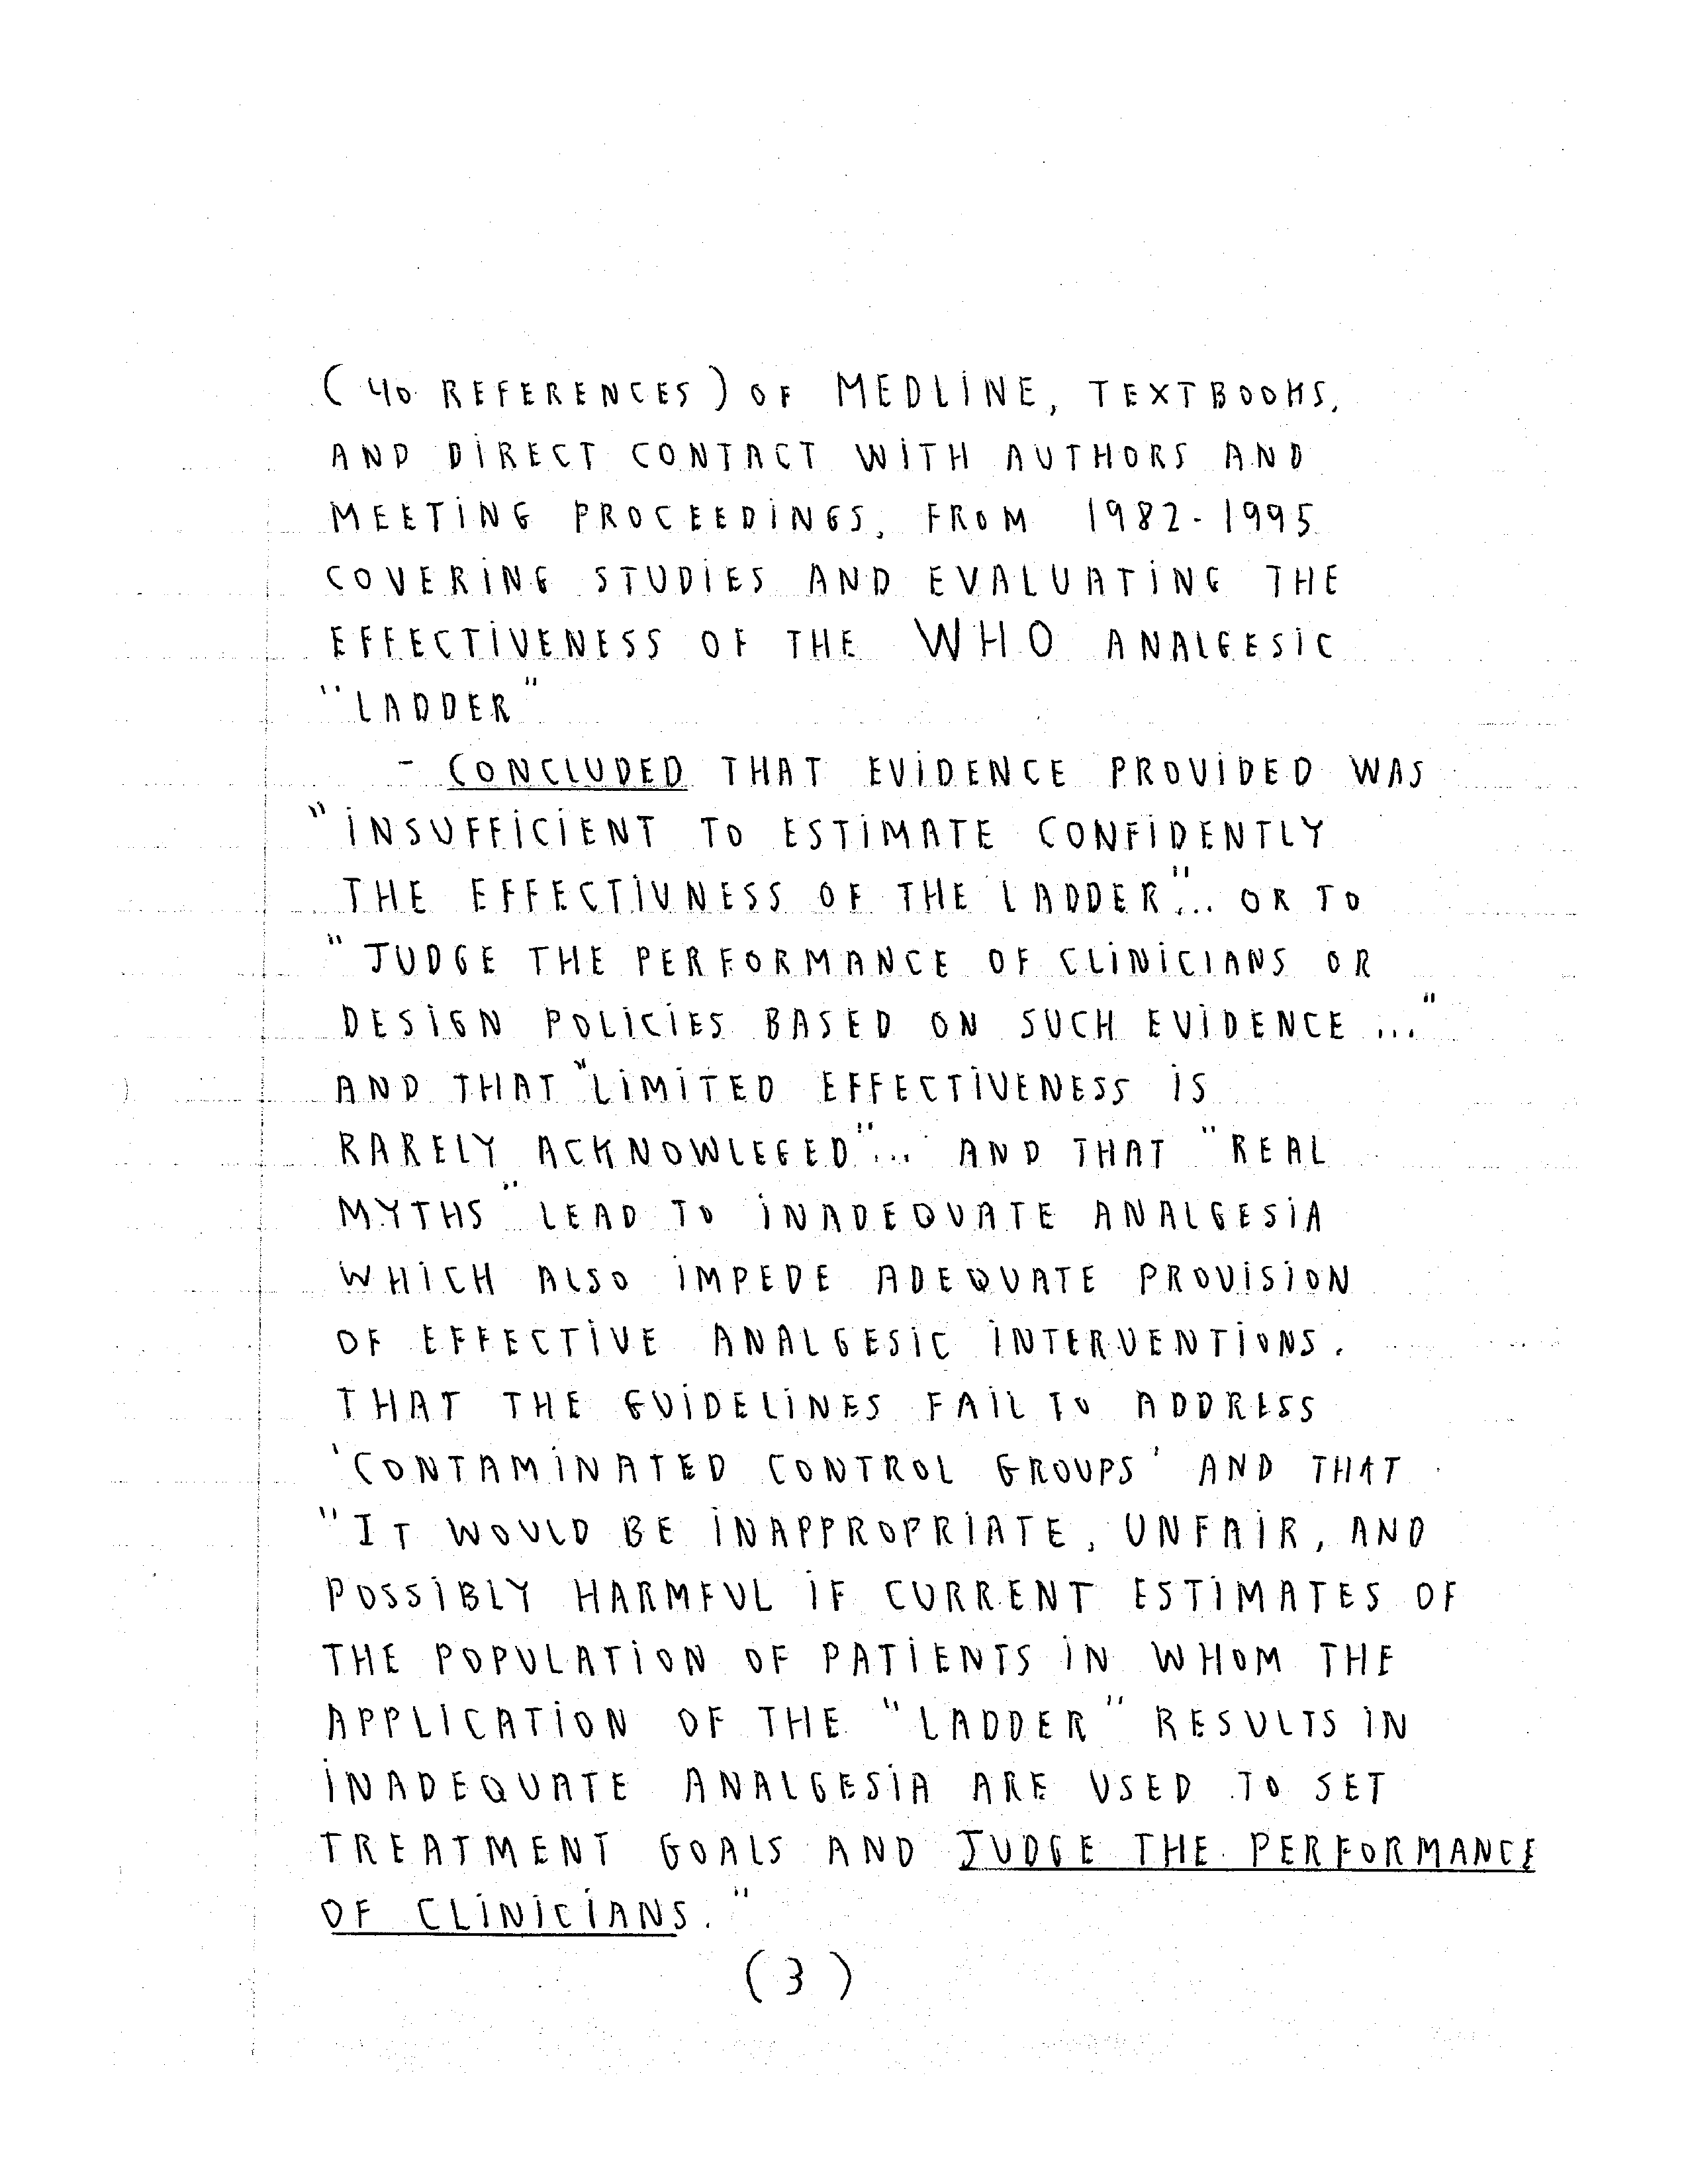 (40 REFERENCES) OF MEDLINE, TEXTBOOKS,
AND DIRECT CONTACT WITH AUTHORS AND
MEETING PROCEEDINGS, FROM 1982-1995
COVERING STUDIES AND EVALUATING THE
EFFECTIVENESS OF THE WHO ANALGESIC
"LADDER"
- CONCLUDED THAT EVIDENCE PROVIDED WAS
"INSUFFICIENT TO ESTIMATE CONFIDENTLY
THE EFFECTIVNESS OF THE LADDER"... OR TO
"JUDGE THE PERFORMANCE OF CLINICIANS OR
DESIGN POLICIES BASED ON SUCH EVIDENCE..."
AND THAT "LIMITED EFFECTIVENESS IS
RARELY ACKNOWLEGED"... AND THAT "REAL
MYTHS" LEAD TO INADEQUATE ANALGESIA
WHICH ALSO IMPEDE ADEQUATE PROVISION
OF EFFECTIVE ANALGESIC INTERVENTIONS.
THAT THE GUIDELINES FAIL TO ADDRESS
'CONTAMINATED CONTROL GROUPS' AND THAT
"IT WOULD BE INAPPROPRIATE, UNFAIR, AND
POSSIBLY HARMFUL IF CURRENT ESTIMATES OF
THE POPULATION OF PATIENTS IN WHOM THE
APPLICATION OF THE "LADDER" RESULTS IN
INADEQUATE ANALGESIA ARE USED TO SET
TREATMENT GOALS AND JUDGE THE PERFORMANCE
OF CLINICIANS."
(3)